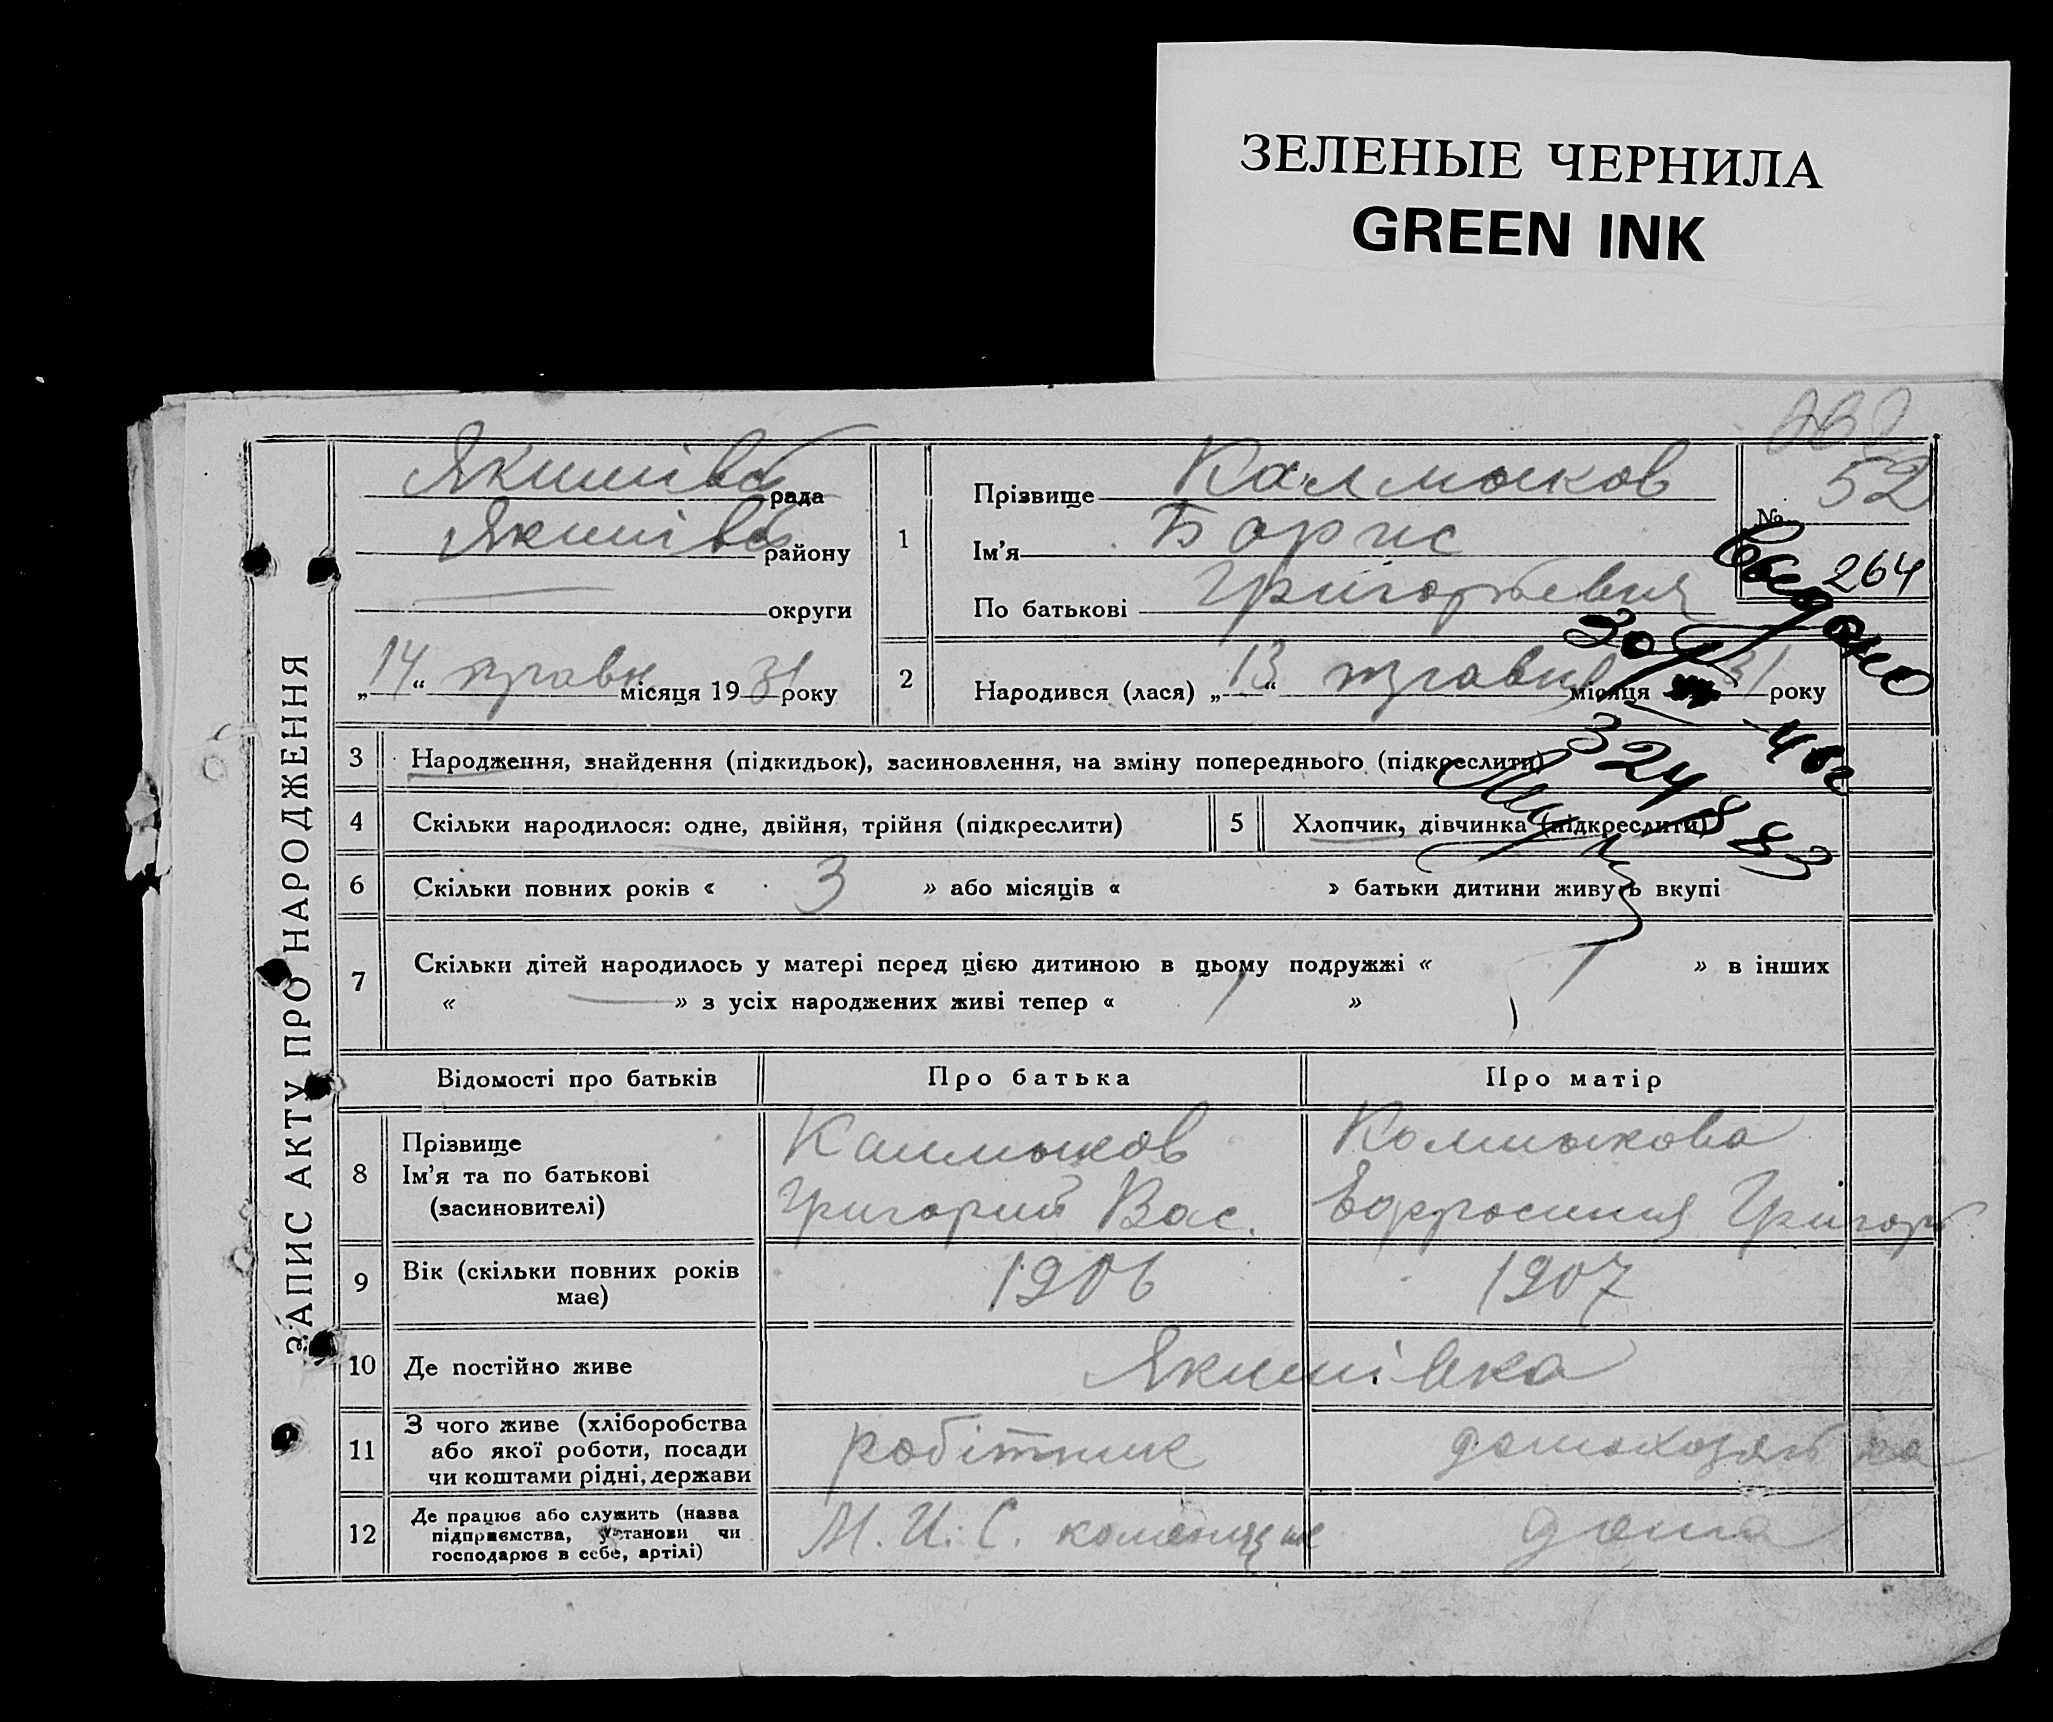 ЗЕЛЕНЫЕ ЧЕРНИЛА
GREEN INK
ЗАПИС АКТУ ПРО НАРОДЖЕННЯ
Якимівс рада
Якимівс району
округи
„14“ травн місяця 1931 року
1
Прізвище Калмыков
Ім'я Борис
По батькові Григорьевич
№ 52
264
Выдано
2
Народився (лася) „13“ травня місяця 31 року
3 Народження, знайдення (підкидьок), засиновлення, на зміну попереднього (підкреслити)
4 Скільки народилося: одне, двійня, трійня (підкреслити)
5 Хлопчик, дівчинка (підкреслити)
6 Скільки повних років « 3 » або місяців « » батьки дитини живуть вкупі
7 Скільки дітей народилось у матері перед цією дитиною в цьому подружжі « 1 » в інших
« — » з усіх народжених живі тепер « 1 »
Відомості про батьків Про батька Про матір
8 Прізвище
Ім'я та по батькові
(засновителі)
Калмыков
Григорий Вас.
Калмыкова
Ефросиния Григорь
9 Вік (скільки повних років
має)
1906 1907
10 Де постійно живе Якимівка
11 З чого живе (хліборобства
або якої роботи, посади
чи коштами рідні, держави
робітник домохозяйка
12 Де працює або служить (назва
підприємства, установи чи
господарює в себе, артілі)
М. И. С. дома